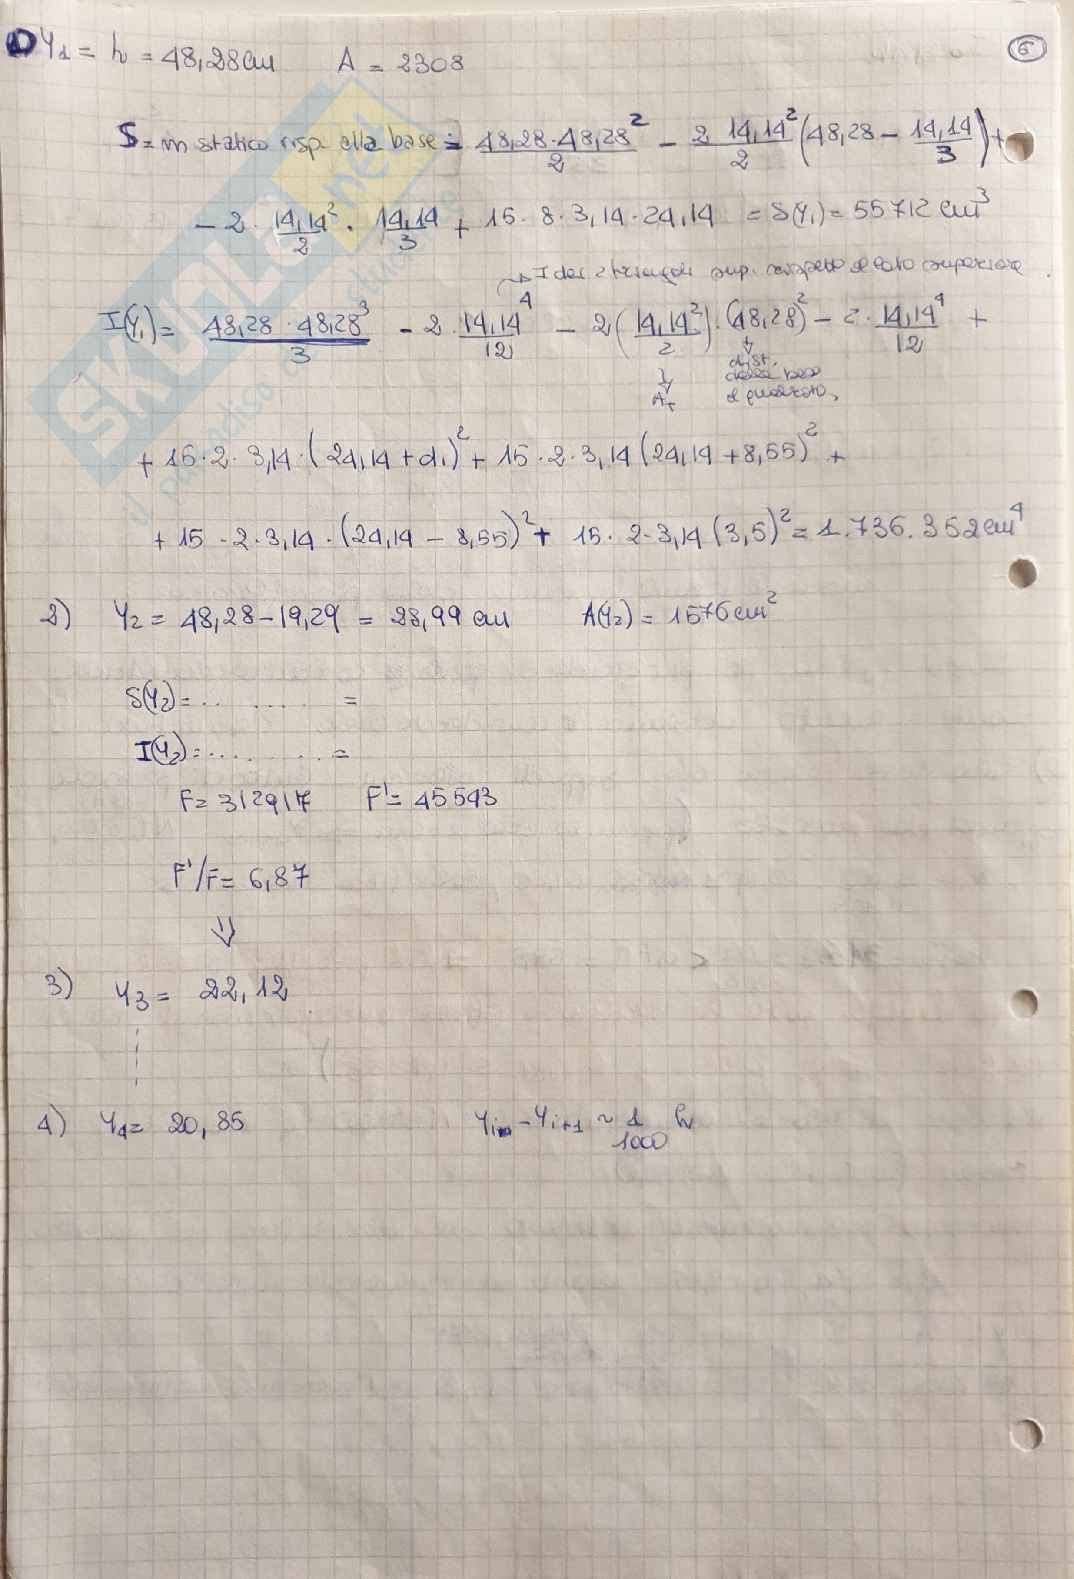 6
1) Y₁ = h = 48,28 cm A = 2308
S = m statico risp alla base = 48,28·48,28²/2 − 2 14,14²/2 (48,28 − 14,14/3) +
− 2 · 14,14²/2 · 14,14/3 + 15 · 8 · 3,14 · 24,14 = S(Y₁) = 55712 cm³
→ I dei 2 triangoli sup. rispetto al lato superiore.
I(Y₁) = 48,28 · 48,28³/3 − 2 · 14,14⁴/12 − 2 (14,14²/2) · (48,28)² − 2 · 14,14⁴/12 +
A_T dist.
dalla base
al quadrato,
+ 15 · 2 · 3,14 · (24,14 + d₁)² + 15 · 2 · 3,14 (24,14 + 8,55)² +
+ 15 · 2 · 3,14 · (24,14 − 8,55)² + 15 · 2 · 3,14 (3,5)² = 1.736.352 cm⁴
2) Y₂ = 48,28 − 19,29 = 28,99 cm A(Y₂) = 1576 cm²
S(Y₂) = .. .... =
I(Y₂) = ... .... =
F = 312917 F' = 45543
F'/F = 6,87
⇓
3) Y₃ = 22,12
4) Y₄ = 20,85 Yᵢ − Yᵢ₊₁ ~ 1/1000 h
SKUOLA.net
il paradiso dello studente